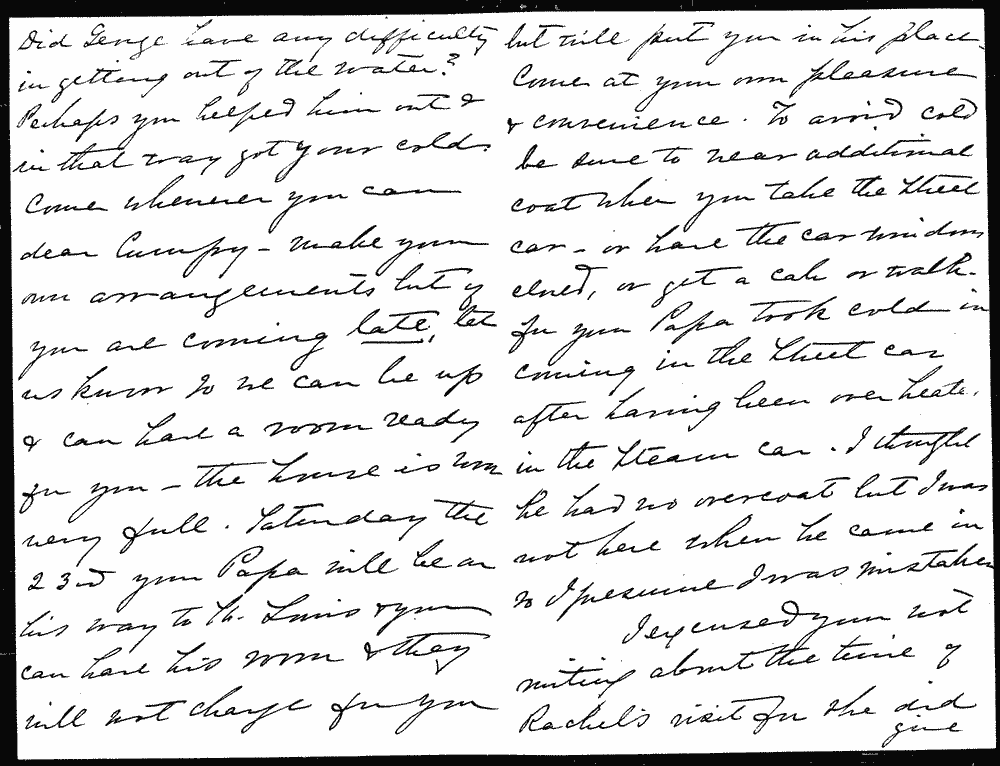 Did George have any difficulty
in getting out of the water?
Perhaps you helped him out &
in that way got your cold.
Come whenever you can
dear Cumpy - make your
own arrangements but if
you are coming late, let
us know so we can be up
& can have a room ready
for you - the house is now
very full. Saturday the
23rd your Papa will be on
his way to St. Louis & you
can have his room & they
will not charge for you
but will put you in his place.
Come at your own pleasure
& convenience. To avoid cold
be sure to wear additional
coat when you take the street
car - or have the car windows
closed, or get a cab or walk -
for your Papa took cold in
coming in the street car
after having been over heated,
in the steam car. I thought
he had no overcoat but I was
not here when he came in
so I presume I was mistaken
I excused your not
writing about the time of
Rachel's visit for she did
give